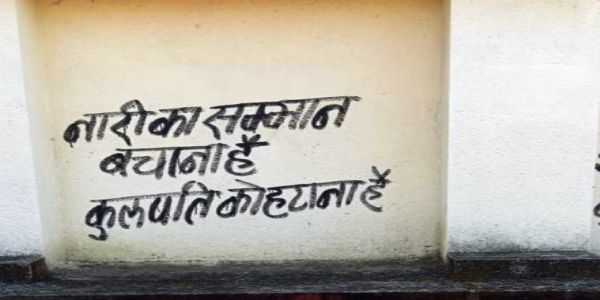 नारी का सम्मान
बचाना है
कुलपति को हटाना है